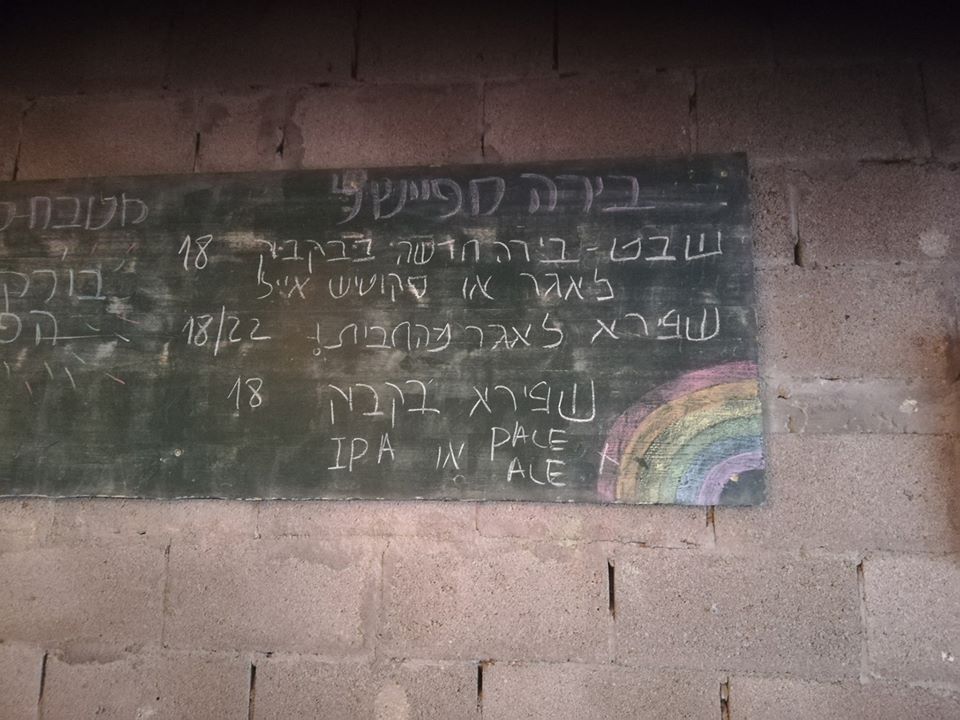 בירה ספיישל
שבט - בירה חדשה בבקבוק 18
לאגר או סקוטיש אייל
שפירא לאגר מהחבית! 18/22
שפירא בקבוק 18
PALE ALE או IPA
מטבח
בורק